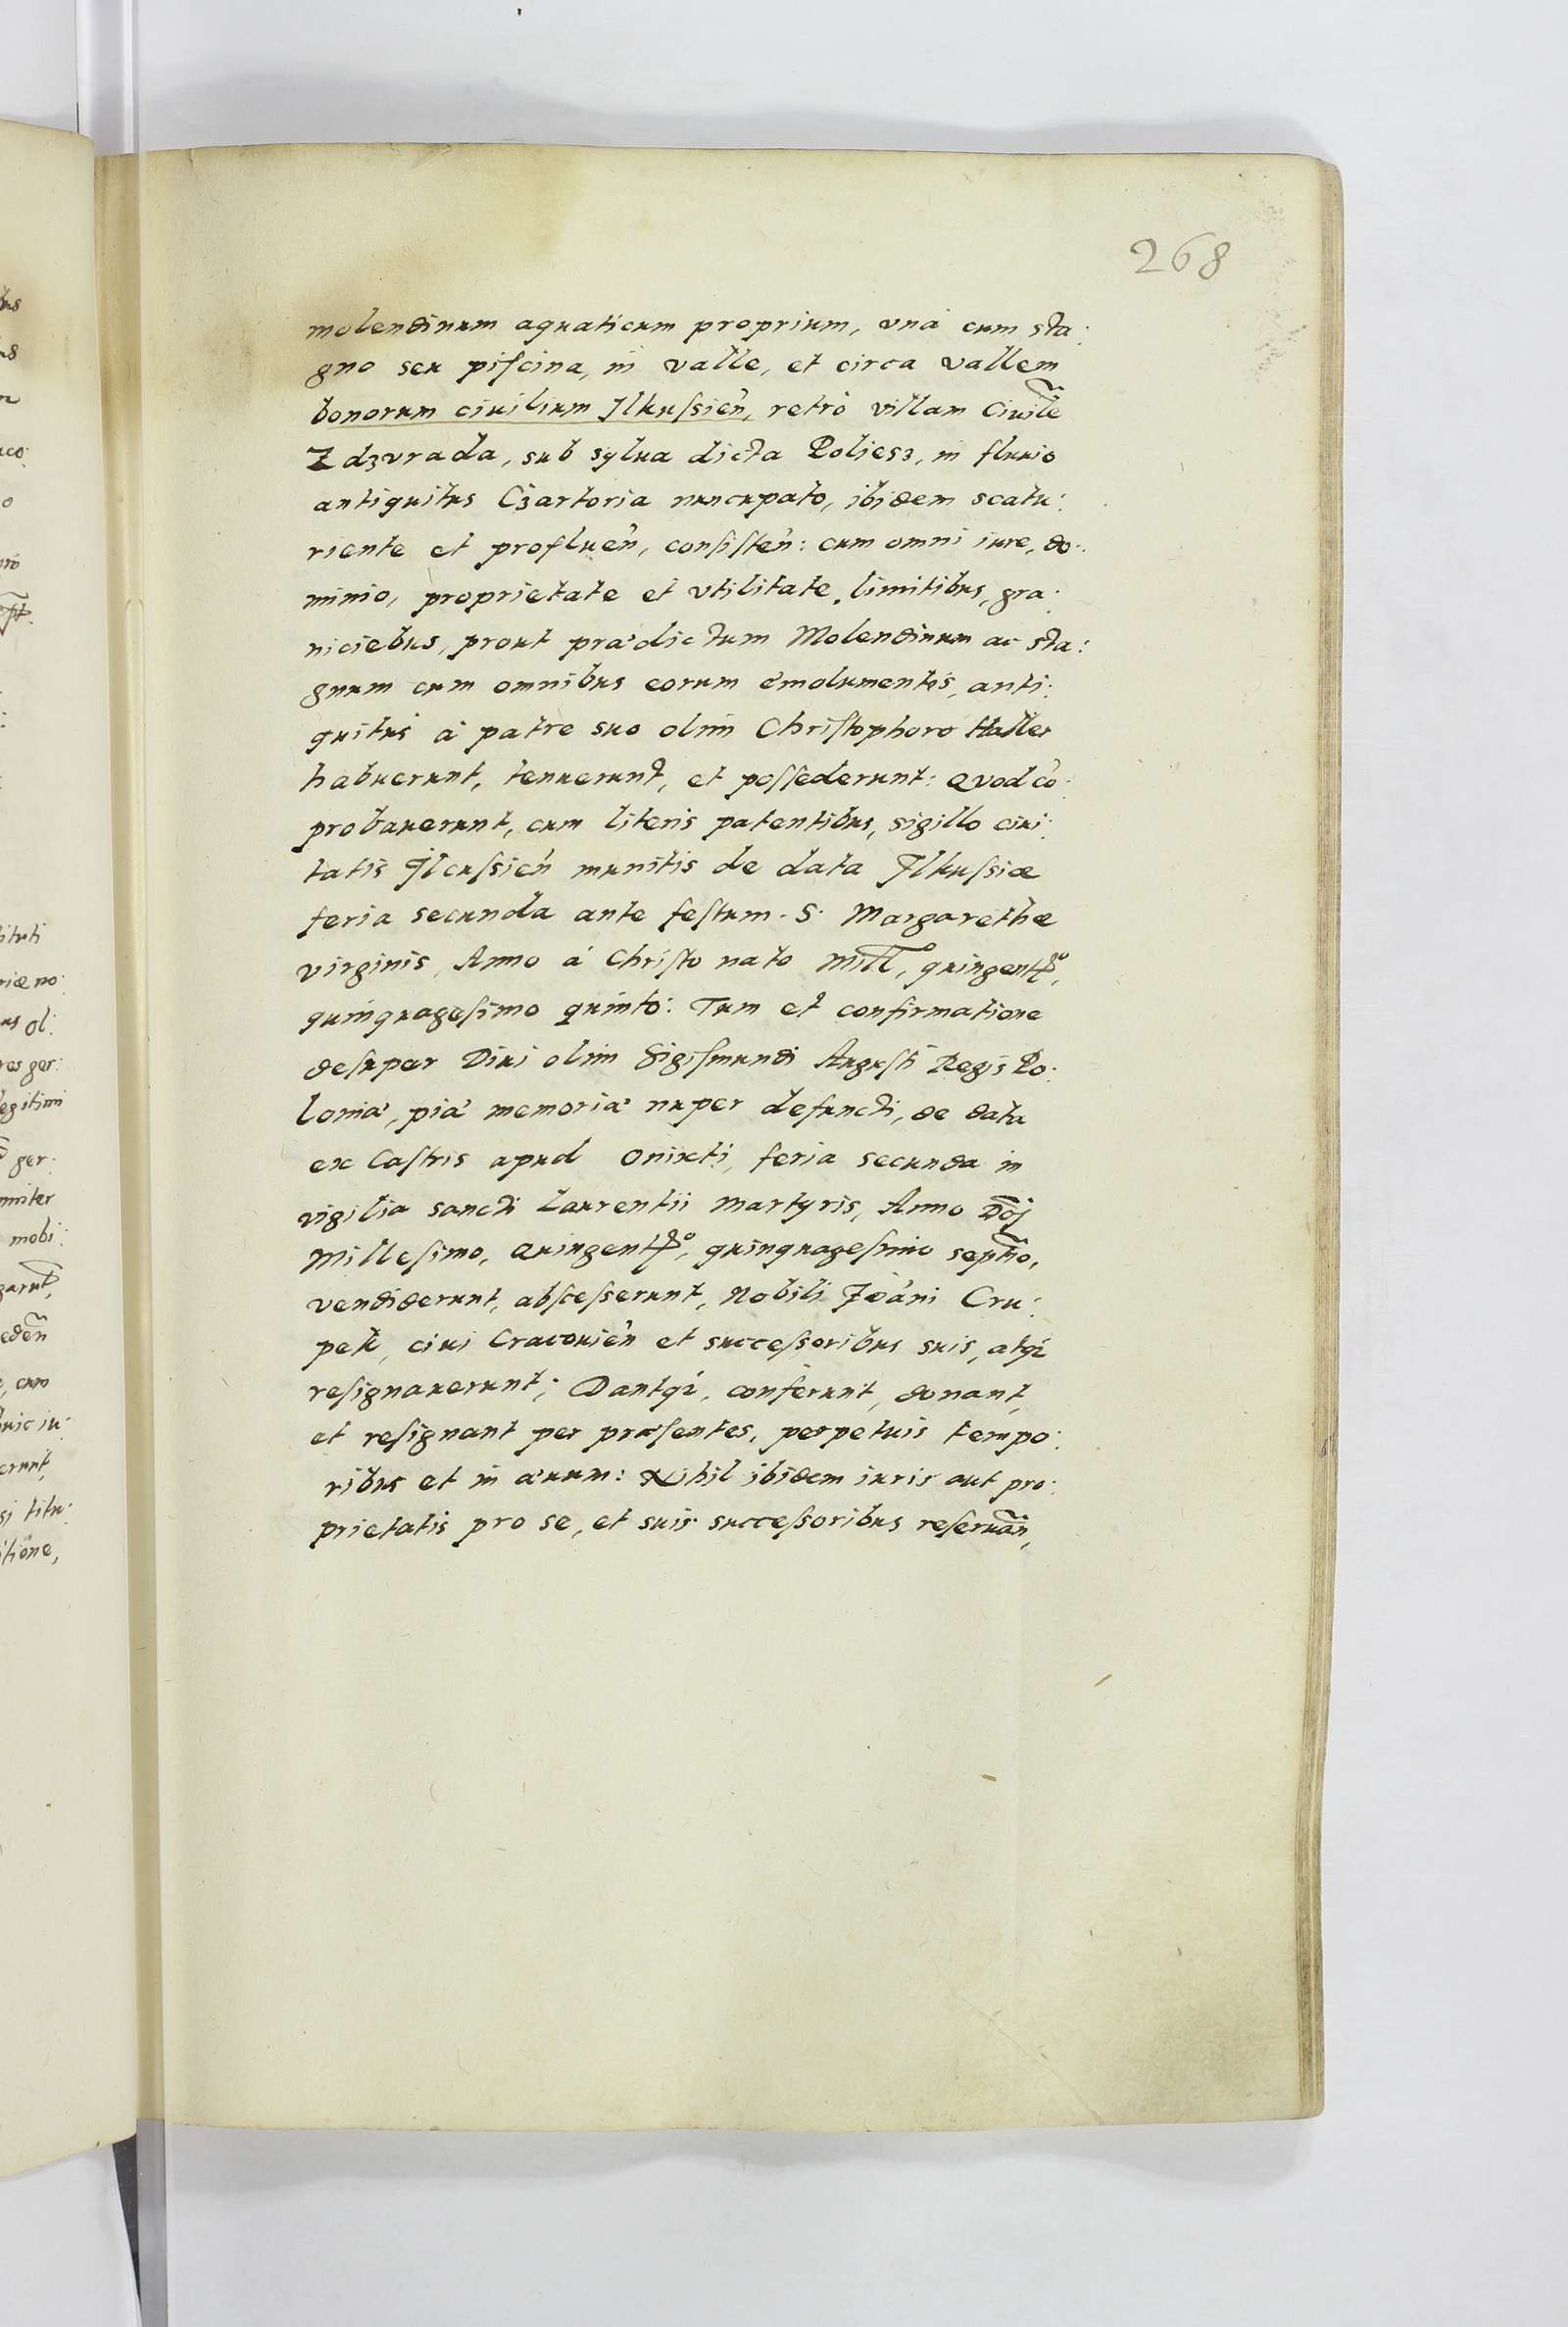 268
molendinum aquaticum proprium, vnà cum sta:
gno seu piscina, in valle, et circa vallem
bonorum ciuilium Ilkussien̄, retrò villam Ciuile~
Zdzvrada, sub sylua dicta Poliesz, in fluuio
antiquitus Czartoria nuncupato, ibidem scatu:
riente et profluen̄, consisten̄: cum omni iure, do:
minio, proprietate et vtilitate, limitibus, gra:
niciebus, prout prædictum Molendinum ac sta:
gnum cum omnibus eorum emolumentis, anti:
quitus à patre suo olim Christophoro Haller
habuerunt, tenuerunt, et possederunt: Quod cō:
probauerunt, cum literis patentibus, sigillo ciui:
tatis Ilcussien̄ munitis de data Ilkussiæ
feria secunda ante festum S. Margarethæ
virginis, Anno à Christo nato Mill̄o, quingent~o,
quinquagesimo quinto: Tum et confirmatione
desuper Diui olim Sigismundi Augusti Regis Po:
loniæ, piæ memoriæ nuper defuncti, de data
ex Castris apud Onixti, feria secunda in
vigilia sancti Laurentii Martyris, Anno Dn̄j
Millesimo, Quingent~o, quinquagesimo septīo,
vendiderunt, abscesserunt, Nobili Joāni Cru:
pek, ciui Cracouien̄ et successoribus suis, atq́
resignauerunt; Dantq́, conferunt, donant,
et resignant per præsentes, perpetuis tempo:
ribus et in æuum: Nihil ibidem iuris aut pro:
prietatis pro se, et suis successoribus reseruan̄,